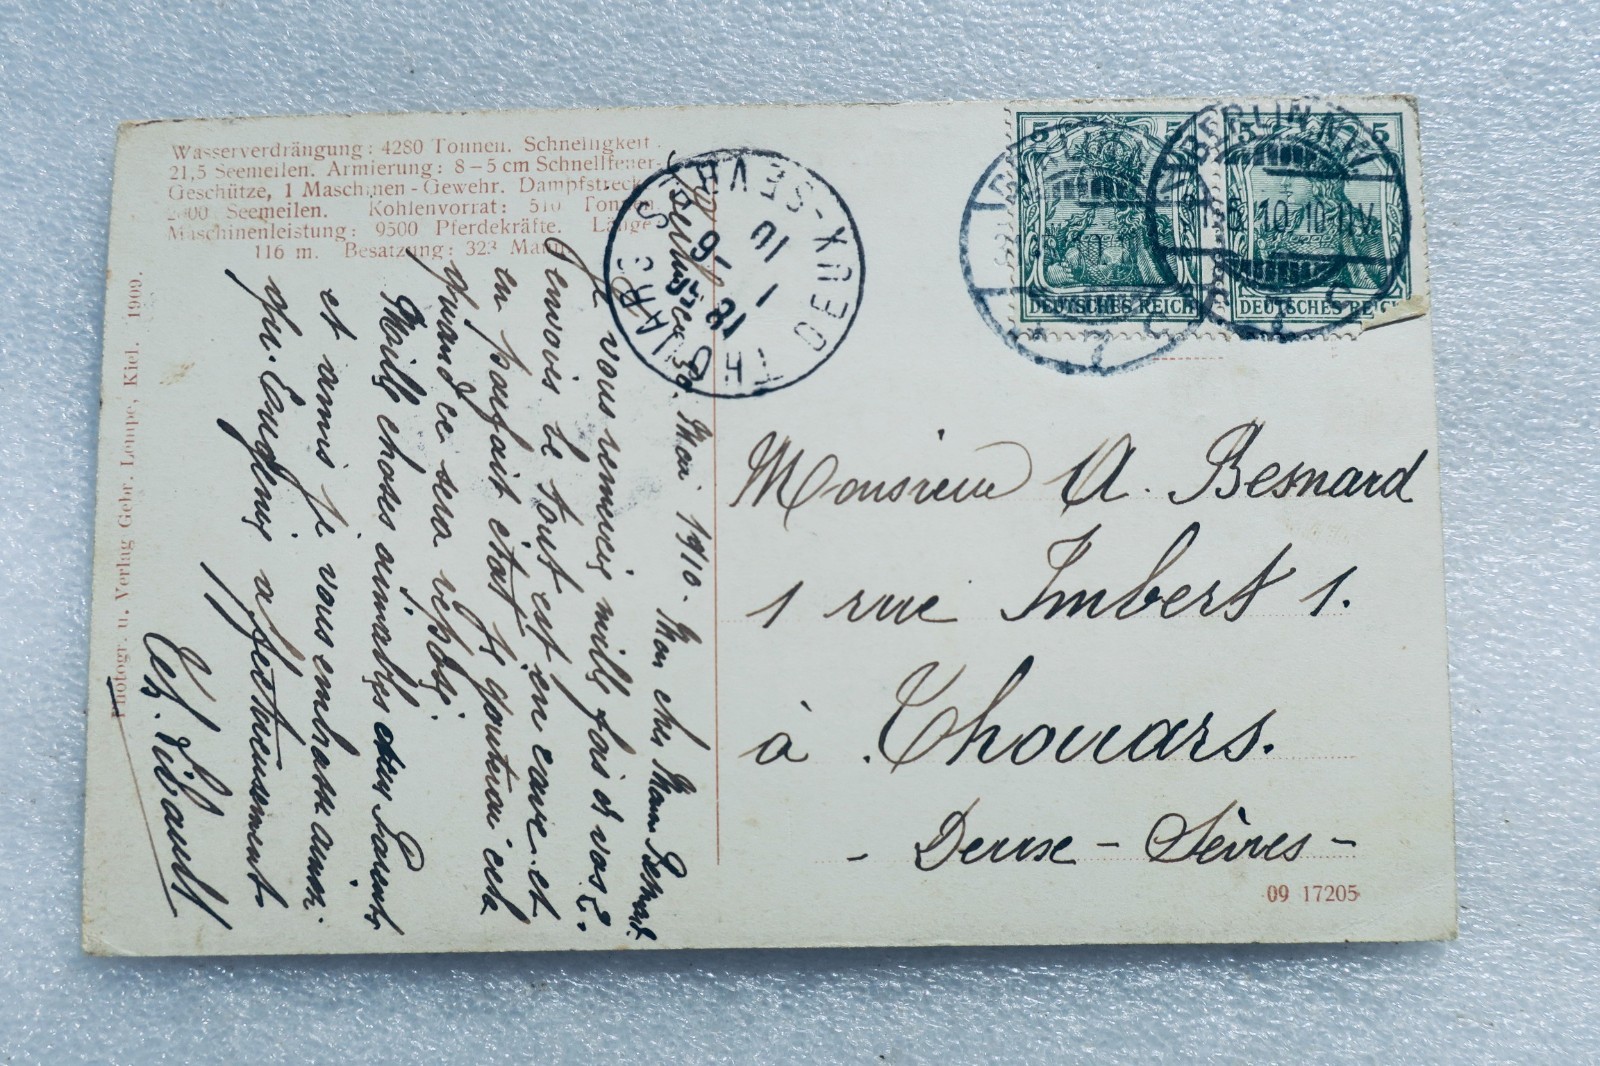 Wasserverdrängung: 4280 Tonnen. Schnelligkeit
21,5 Seemeilen. Armierung: 8–5 cm Schnellfeuer-
Geschütze, 1 Maschinen-Gewehr. Dampfstrecke
2000 Seemeilen. Kohlenvorrat: 510 Tonnen
Maschinenleistung: 9500 Pferdekräfte. Länge
116 m. Besatzung: 323 Mann
Photogr. u. Verlag Gebr. Lempe, Kiel. 1909.
THOUARS
DEUX-SEVRES
18
1
10
5
5
DEUTSCHES REICH
5
5
DEUTSCHES REICH
BERLIN N.W.
10-11V.
Mai 1910. Mon cher
Je vous remercie mille fois de vos
envois le tout est en cave et
en parfait état je
quand ce sera
Mille choses aimables aux Parents
et amis je vous embrasse
affectueusement
Monsieur A. Besnard
1 rue Imbert 1.
à Thouars.
- Deux-Sèvres -
09 17205